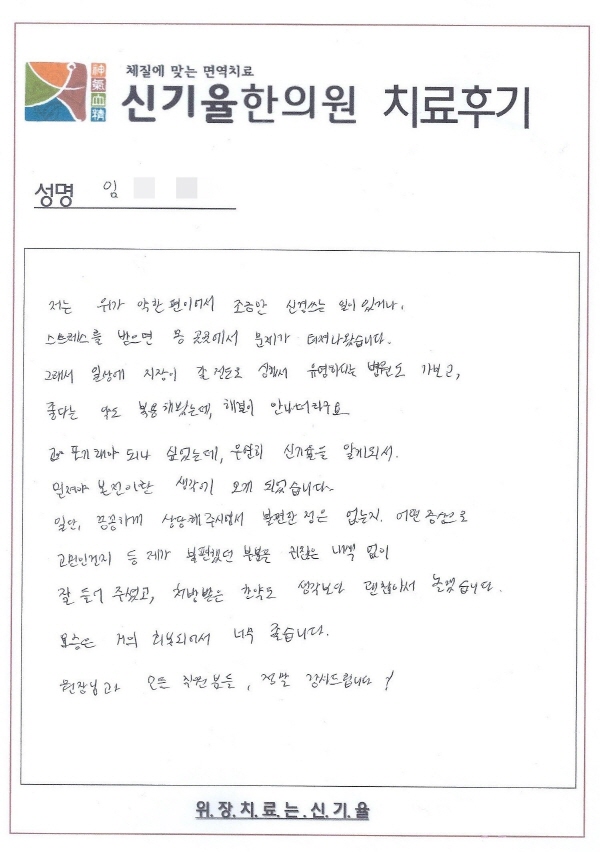 체질에 맞는 면역치료
神氣血精
신기율한의원 치료후기
성명 임
저는 위가 약한 편이어서 조금만 신경쓰는 일이 있거나,
스트레스를 받으면 몸 곳곳에서 문제가 터져나왔습니다.
그래서 일상에 지장이 갈 정도로 심해서 유명하다는 병원도 가보고,
좋다는 약도 복용해봤는데, 해결이 안나더라구요
포기해야 되나 싶었는데, 우연히 신기율을 알게되서.
밑져야 본전이란 생각에 오게 되었습니다.
일단, 꼼꼼하게 상담해주시면서 불편한 점은 없는지. 어떤 증상으로
고민인건지 등 제가 불편했던 부분을 귀찮은 내색 없이
잘 들어 주셨고, 처방받은 한약도 생각보다 괜찮아서 놀랬습니다.
요즘은 거의 회복되어서 너무 좋습니다.
원장님과 모든 직원분들, 정말 감사드립니다!
위.장.치.료.는.신.기.율